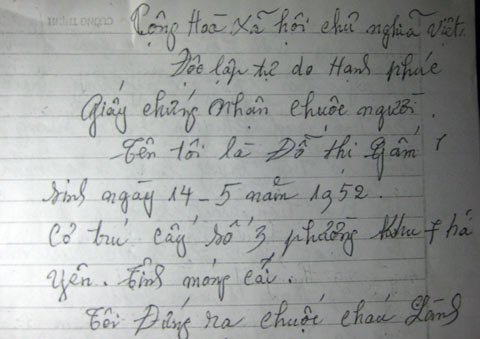 Cộng Hoà Xã hội chủ nghĩa Việt
Độc lập tự do Hanh phúc
Giấy chứng nhận chuộc người.
Tên tôi là Đỗ thi Gấm
sinh ngày 14-5 năm 1952.
Cở trú cấy số 3 phường khu
yên. tỉnh móng cái.
Tôi Đứng ra chuộc cháu Lành